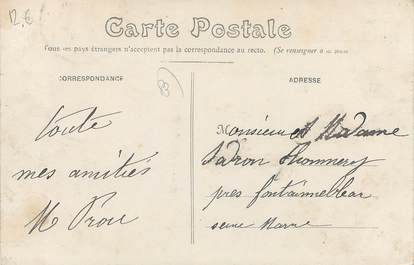 12.€
Carte Postale
Tous les pays étrangers n'acceptent pas la correspondance au recto. (Se renseigner à la poste)
CORRESPONDANCE
ADRESSE
83
toute
mes amitiés
M Prou
Monsieur et Madame
Thomery
près fontainnebleau
seine Marne